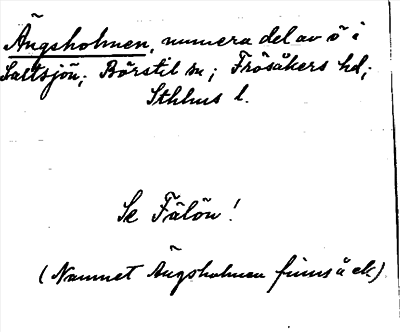 Ängsholmen, numera del av ö i
Saltsjön; Börstil sn; Frösåkers hd;
Sthlms l.
Se Fälön!
(Namnet Ängsholmen finns å ek)